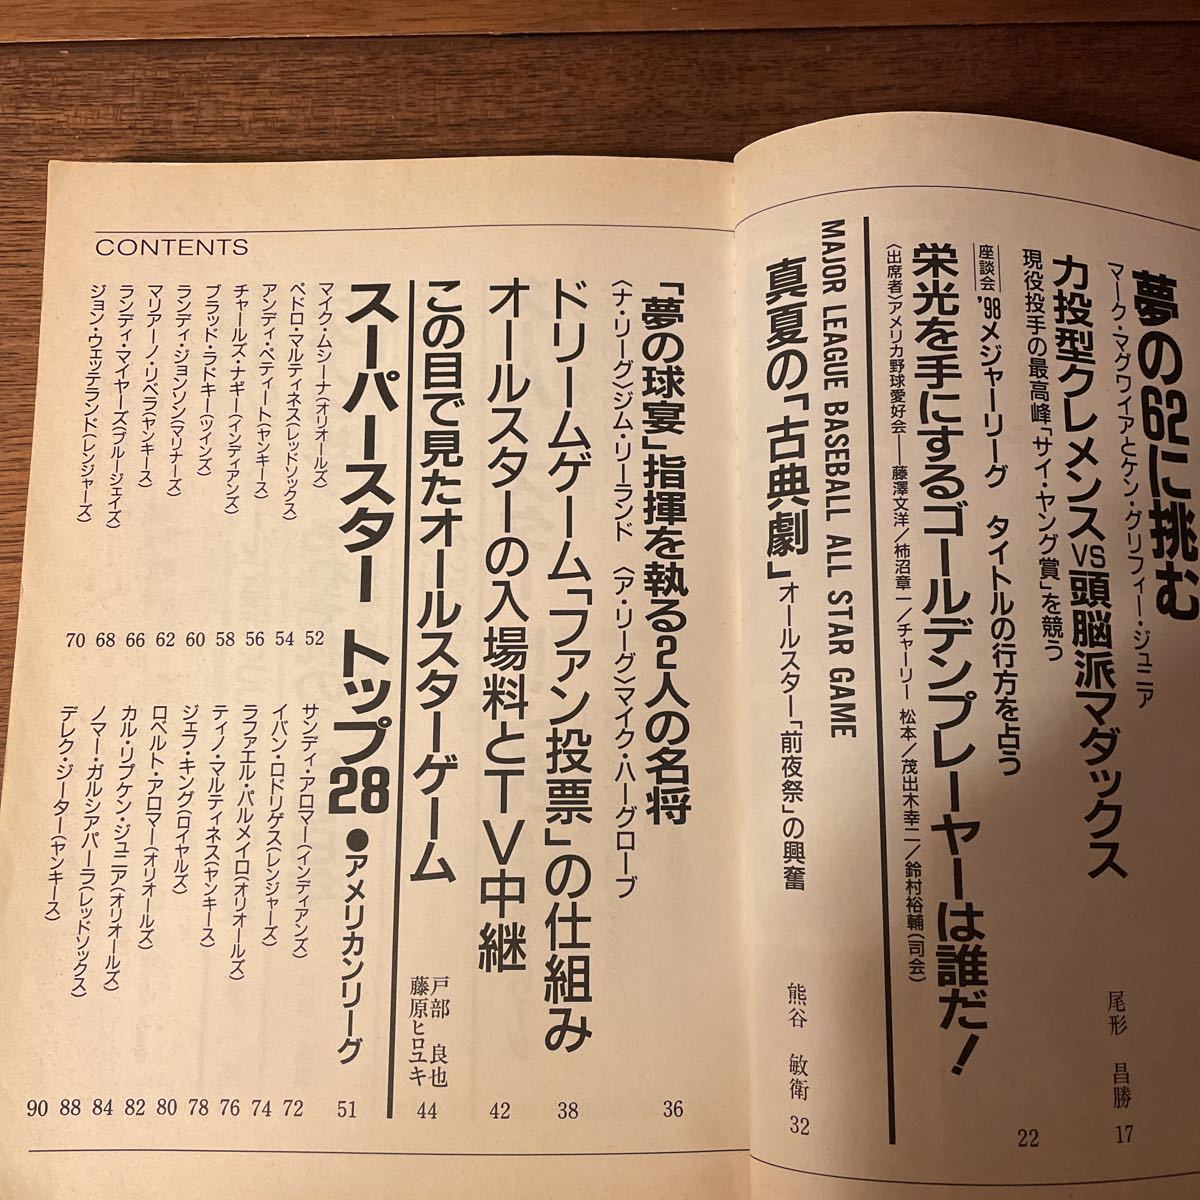 夢の62に挑む
マーク・マグワイアとケン・グリフィー・ジュニア
尾形 昌勝 17
力投型クレメンスVS頭脳派マダックス
現役投手の最高峰「サイ・ヤング賞」を競う
座談会 '98メジャーリーグ タイトルの行方を占う
栄光を手にするゴールデンプレーヤーは誰だ!
22
〈出席者〉アメリカ野球愛好会――藤澤文洋/柿沼章一/チャーリー松本/茂出木幸二/鈴村裕輔(司会)
MAJOR LEAGUE BASEBALL ALL STAR GAME
真夏の「古典劇」オールスター「前夜祭」の興奮
熊谷 敏衛 32
「夢の球宴」指揮を執る2人の名将
〈ナ・リーグ〉ジム・リーランド 〈ア・リーグ〉マイク・ハーグローブ
36
ドリームゲーム「ファン投票」の仕組み
38
オールスターの入場料とTV中継
42
この目で見たオールスターゲーム
戸部 良也
藤原ヒロユキ
44
スーパースター トップ28●アメリカンリーグ
51
CONTENTS
マイク・ムシーナ(オリオールズ) 52
ペドロ・マルティネス(レッドソックス) 54
アンディ・ペティート(ヤンキース) 56
チャールズ・ナギー(インディアンズ) 58
ブラッド・ラドキー(ツインズ) 60
ランディ・ジョンソン(マリナーズ) 62
マリアーノ・リベラ(ヤンキース) 66
ランディ・マイヤーズ(ブルージェイズ) 68
ジョン・ウェッテランド(レンジャーズ) 70
サンディ・アロマー(インディアンズ) 72
イバン・ロドリゲス(レンジャーズ) 74
ラファエル・パルメイロ(オリオールズ) 76
ティノ・マルティネス(ヤンキース) 78
ジェフ・キング(ロイヤルズ) 80
ロベルト・アロマー(オリオールズ) 82
カル・リプケン・ジュニア(オリオールズ) 84
ノマー・ガルシアパーラ(レッドソックス) 88
デレク・ジーター(ヤンキース) 90